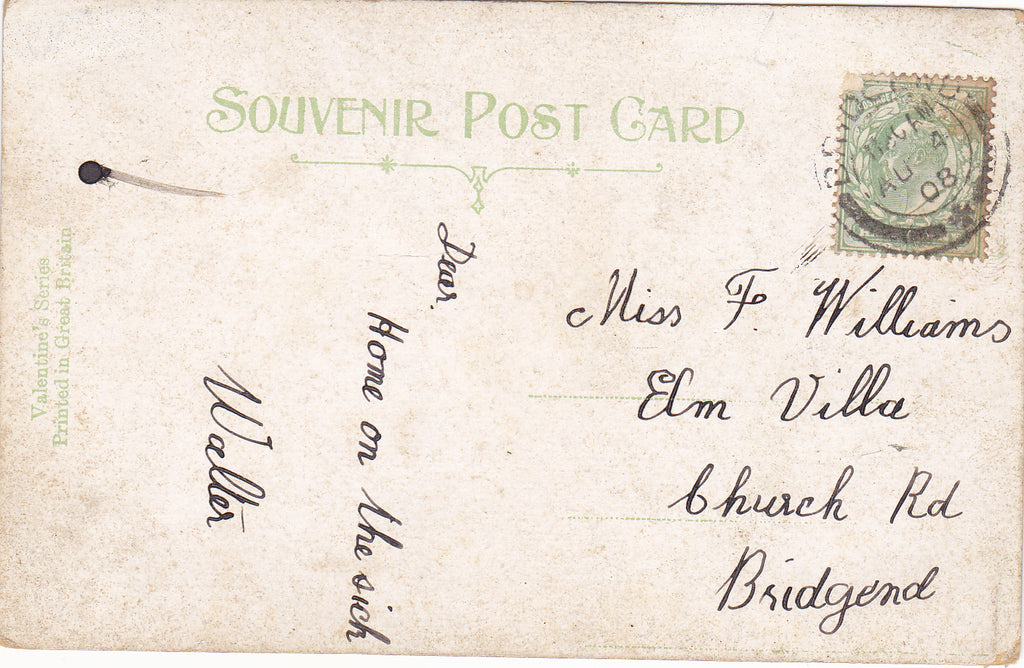 SOUVENIR POST CARD
AU 4
08
Valentine's Series
Printed in Great Britain
Dear,
Home on the sick
Walter
Miss F. Williams
Elm Villa
Church Rd
Bridgend